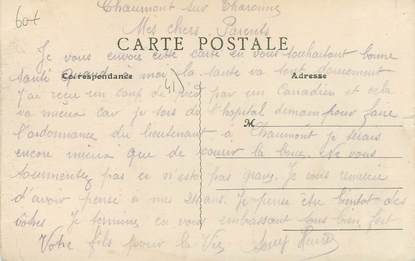 60f
Chaumont sur Tharonne
Mes chers Parents
CARTE POSTALE
Je vous envois cette carte en vous souhaitant bonne
santé quant à moi la santé va tout doucement
Correspondance
Adresse
41
J'ai reçu un coup de pied par un Canadien et cela
va mieux car je sors de l'hopital demain pour faire
M
l'ordonnance du lieutenant à Chaumont je serais
encore mieux que de courir la boue. Ne vous
tourmentez pas ce n'est pas grave. Je vous remercie
d'avoir pensé à mes 21 ans. Je pense être bientôt des
vôtres. Je termine en vous embrassant tous bien fort
Votre fils pour la Vie